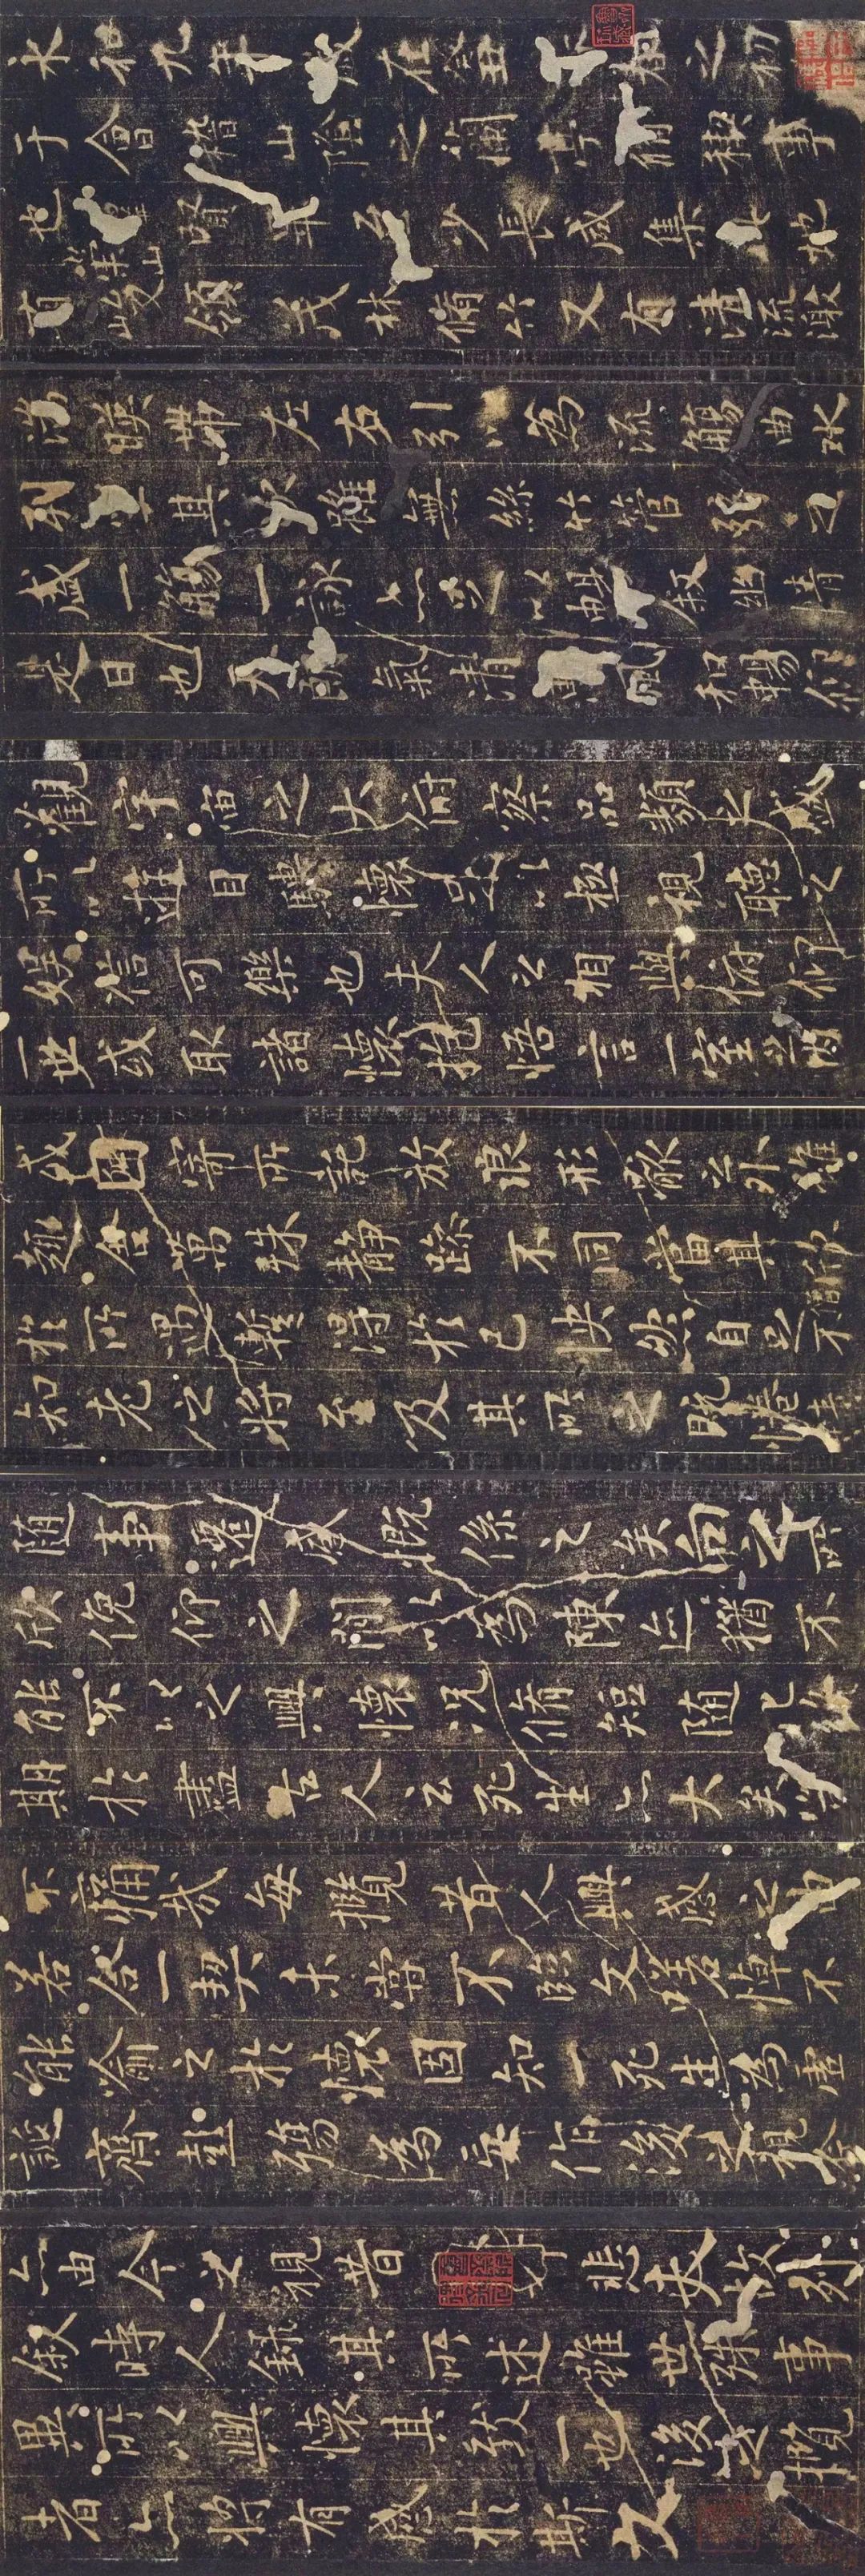 永和九年歲在癸丑暮春之初
于會稽山陰之蘭亭脩稧事
也羣賢畢至少長咸集此地
有崇山峻領茂林脩竹又有清流激
湍暎帶左右引以為流觴曲水
列坐其次雖無絲竹管弦之
盛一觴一詠亦足以暢敘幽情
是日也天朗氣清惠風和暢仰
觀宇宙之大俯察品類之盛
所以遊目騁懷足以極視聽之
娛信可樂也夫人之相與俯仰
一世或取諸懷抱悟言一室之內
或因寄所託放浪形骸之外雖
趣舍萬殊靜躁不同當其欣
於所遇暫得於己快然自足不
知老之將至及其所之既惓情
隨事遷感慨係之矣向之所
欣俛仰之閒以為陳迹猶不
能不以之興懷況脩短隨化終
期於盡古人云死生亦大矣豈
不痛哉每攬昔人興感之由
若合一契未嘗不臨文嗟悼不
能喻之於懷固知一死生為虛
誕齊彭殤為妄作後之視今
亦由今之視昔悲夫故列
敘時人錄其所述雖世殊事
異所以興懷其致一也後之攬
者亦將有感於斯文